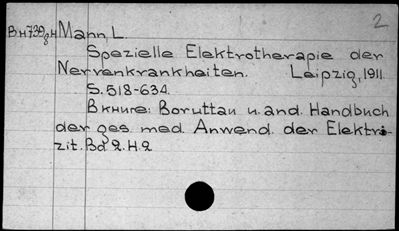 2
Вн739gн Mann, L.
Spezielle Elektrotherapie der
Nervenkrankheiten. Leipzig, 1911.
S. 518-634.
В книге: Boruttau u. and. Handbuch
der ges. med. Anwend. der Elektri-
zit. Bd 2. H. 2